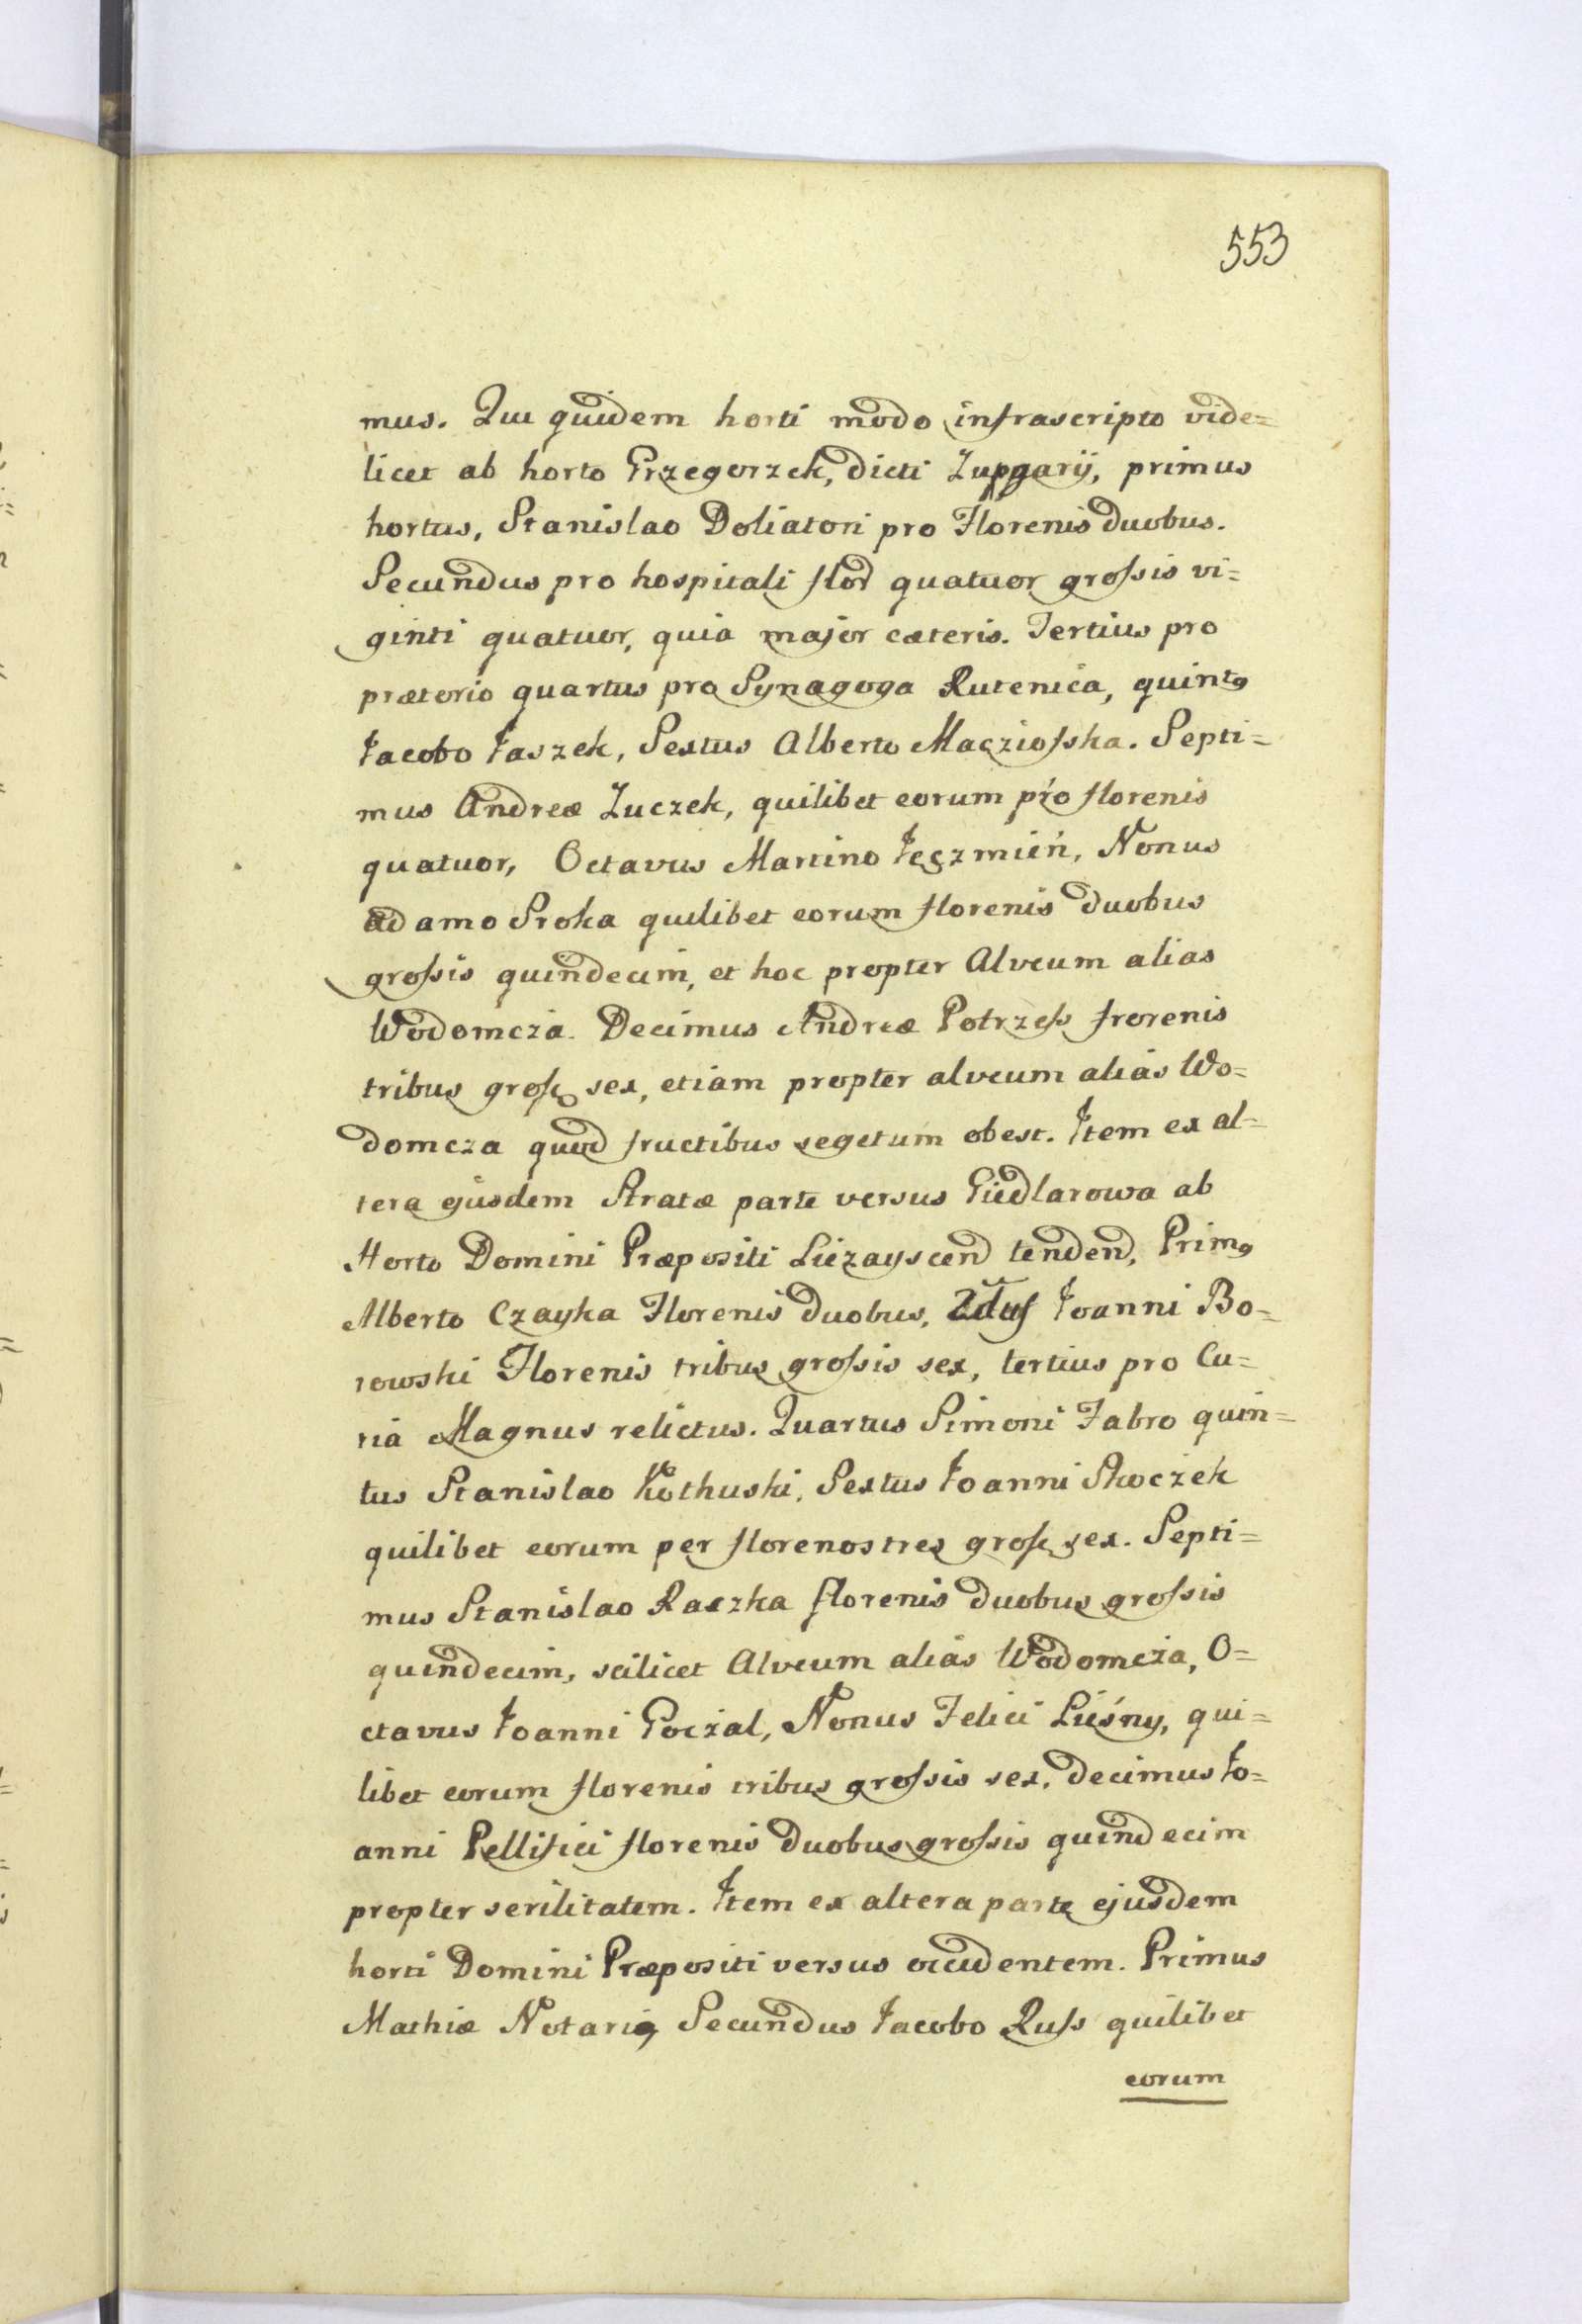 553
mus. Qui quidem horti modo infrascripto vide=
licet ab horto Grzegorzek, dicti Zupgarij, primus
hortus, Stanislao Doliatori pro Florenis duobus.
Secundus pro hospitali flor quatuor grossis vi=
ginti quatuor, quia major cæteris. Tertius pro
prætorio quartus pro Synagoga Rutenica, quintq
Jacobo Jaszek, Sextus Alberto Macziosska. Septi=
mus Andreæ Zuczek, quilibet eorum pro florenis
quatuor, Octavus Martino Jęczmień, Nonus
adamo Sroka quilibet eorum florenis duobus
grossis quindecim, et hoc propter Alveum alias
Wodomcza. Decimus Andreæ Potrzess frorenis
tribus gross sex, etiam propter alveum alias Wo=
domcza quod fructibus segetum obest. Item ex al=
tera ejusdem Stratæ parte versus Giedlarowa ab
Horto Domini Præpositi Liezayscen tenden, Primq
Alberto Czayka Florenis duobus, 2dus Joanni Bo=
rowski Florenis tribus grossis sex, tertius pro Cu=
ria Magnus relictus. Quartus Simoni Fabro quin=
tus Stanislao Kothuski, Sextus Joanni Skoczek
quilibet eorum per florenos tres gross sex. Septi=
mus Stanislao Raczka florenis duobus grossis
quindecim, scilicet Alveum alias Wodomcza, O=
ctavus Joanni Goczal, Nonus Felici Liesny, qui=
libet eorum florenis tribus grossis sex, decimus Jo=
anni Pellifici florenis duobus grossis quindecim
propter serilitatem. Item ex altera parte ejusdem
horti Domini Præpositi versus occidentem. Primus
Mathiæ Notario, Secundus Jacobo Russ quilibet
eorum